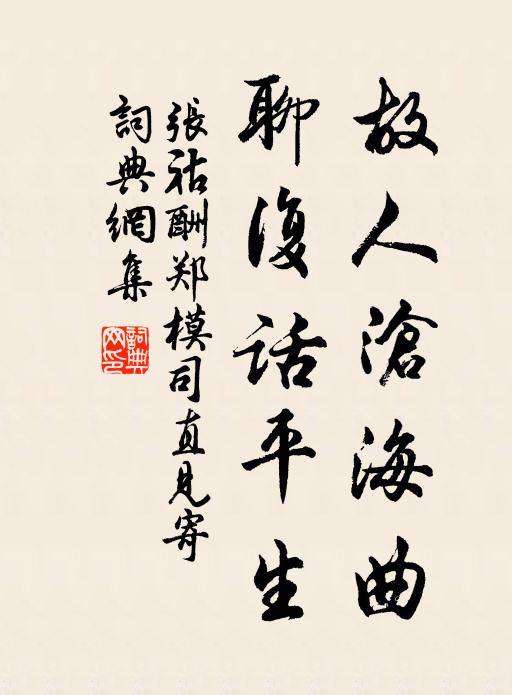 故人滄海曲
聊復話平生
張祜酬鄭模司直見寄
詞典網集
詞典網印